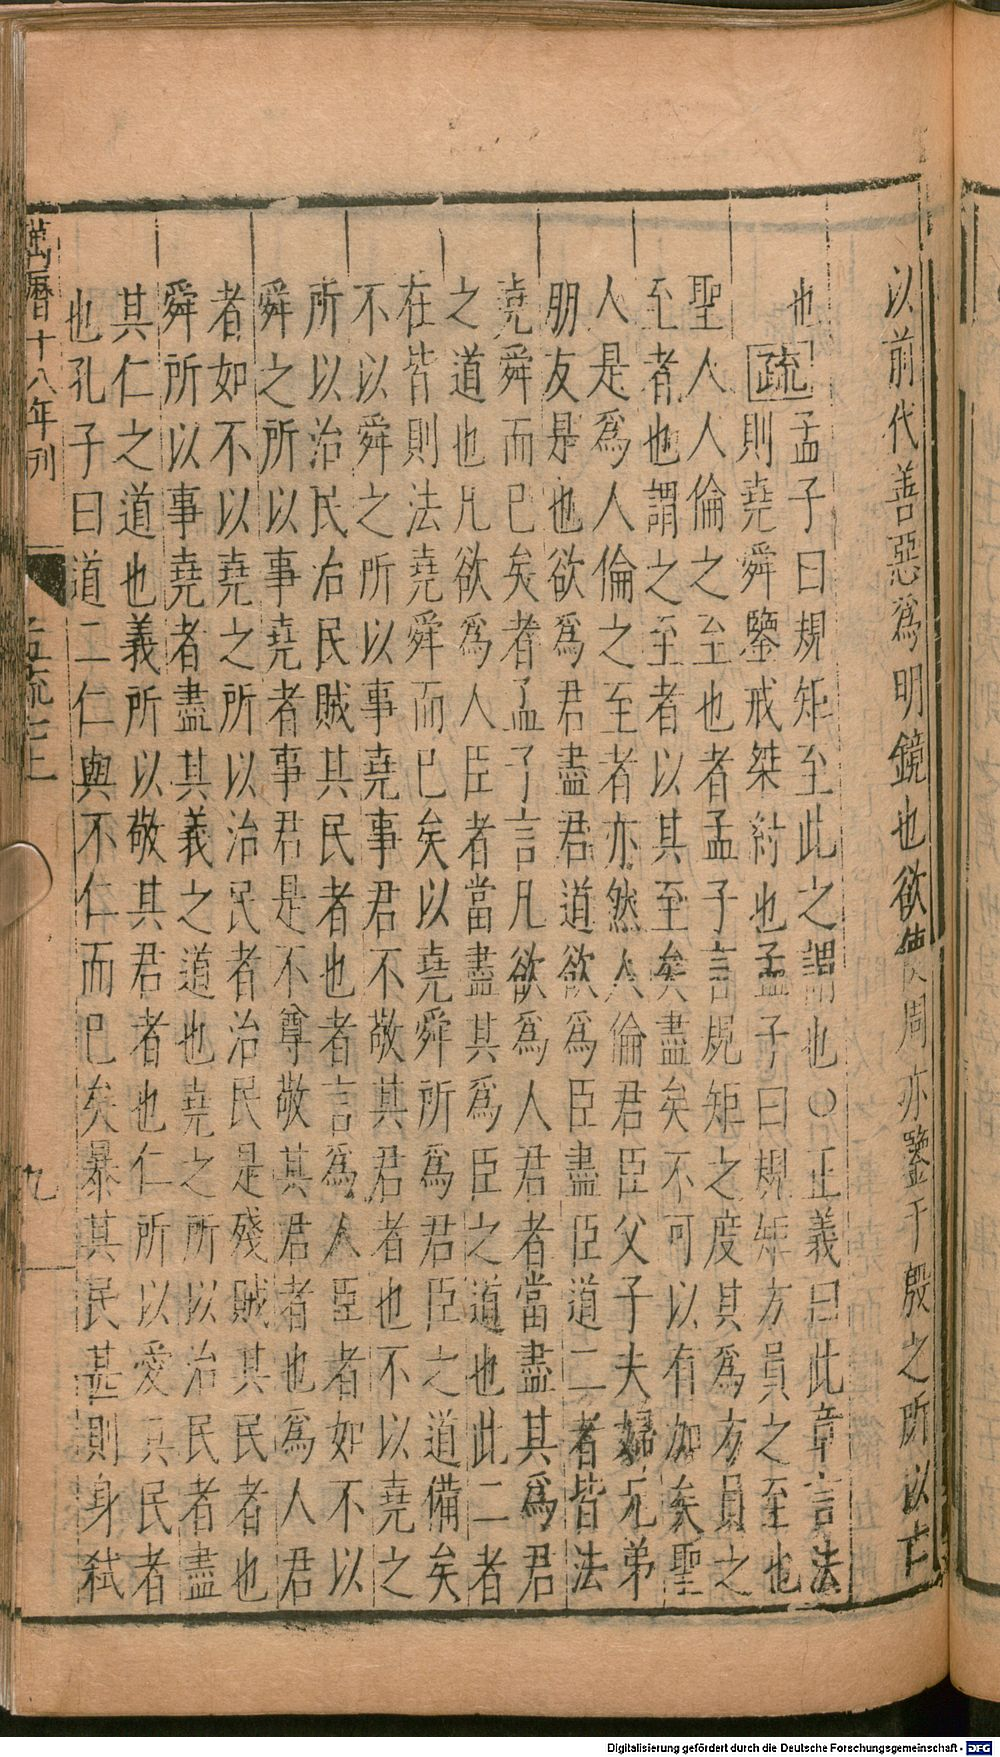 以前代善惡爲明鏡也欲使周亦鑒于殷之所以亡
也疏孟子曰規矩至此之謂也○正義曰此章言法
則堯舜鑒戒桀紂也孟子曰規矩方員之至也
聖人人倫之至也者孟子言規矩之度其爲方員之
至者也謂之至者以其至矣盡矣不可以有加矣聖
人是爲人倫之至者亦然人倫君臣父子夫婦兄弟
朋友是也欲爲君盡君道欲爲臣盡臣道二者皆法
堯舜而已矣者孟子言凡欲爲人君者當盡其爲君
之道也凡欲爲人臣者當盡其爲臣之道也此二者
在皆則法堯舜而已矣以堯舜所爲君臣之道備矣
不以舜之所以事堯事君不敬其君者也不以堯之
所以治民治民賊其民者也者言爲人臣者如不以
舜之所以事堯者事君是不尊敬其君者也爲人君
者如不以堯之所以治民者治民是殘賊其民者也
舜所以事堯者盡其義之道也堯之所以治民者盡
其仁之道也義所以敬其君者也仁所以愛其民者
也孔子曰道二仁與不仁而已矣暴其民甚則身弒
萬曆十八年刊 孟疏七上 九
Digitalisierung gefördert durch die Deutsche Forschungsgemeinschaft - DFG